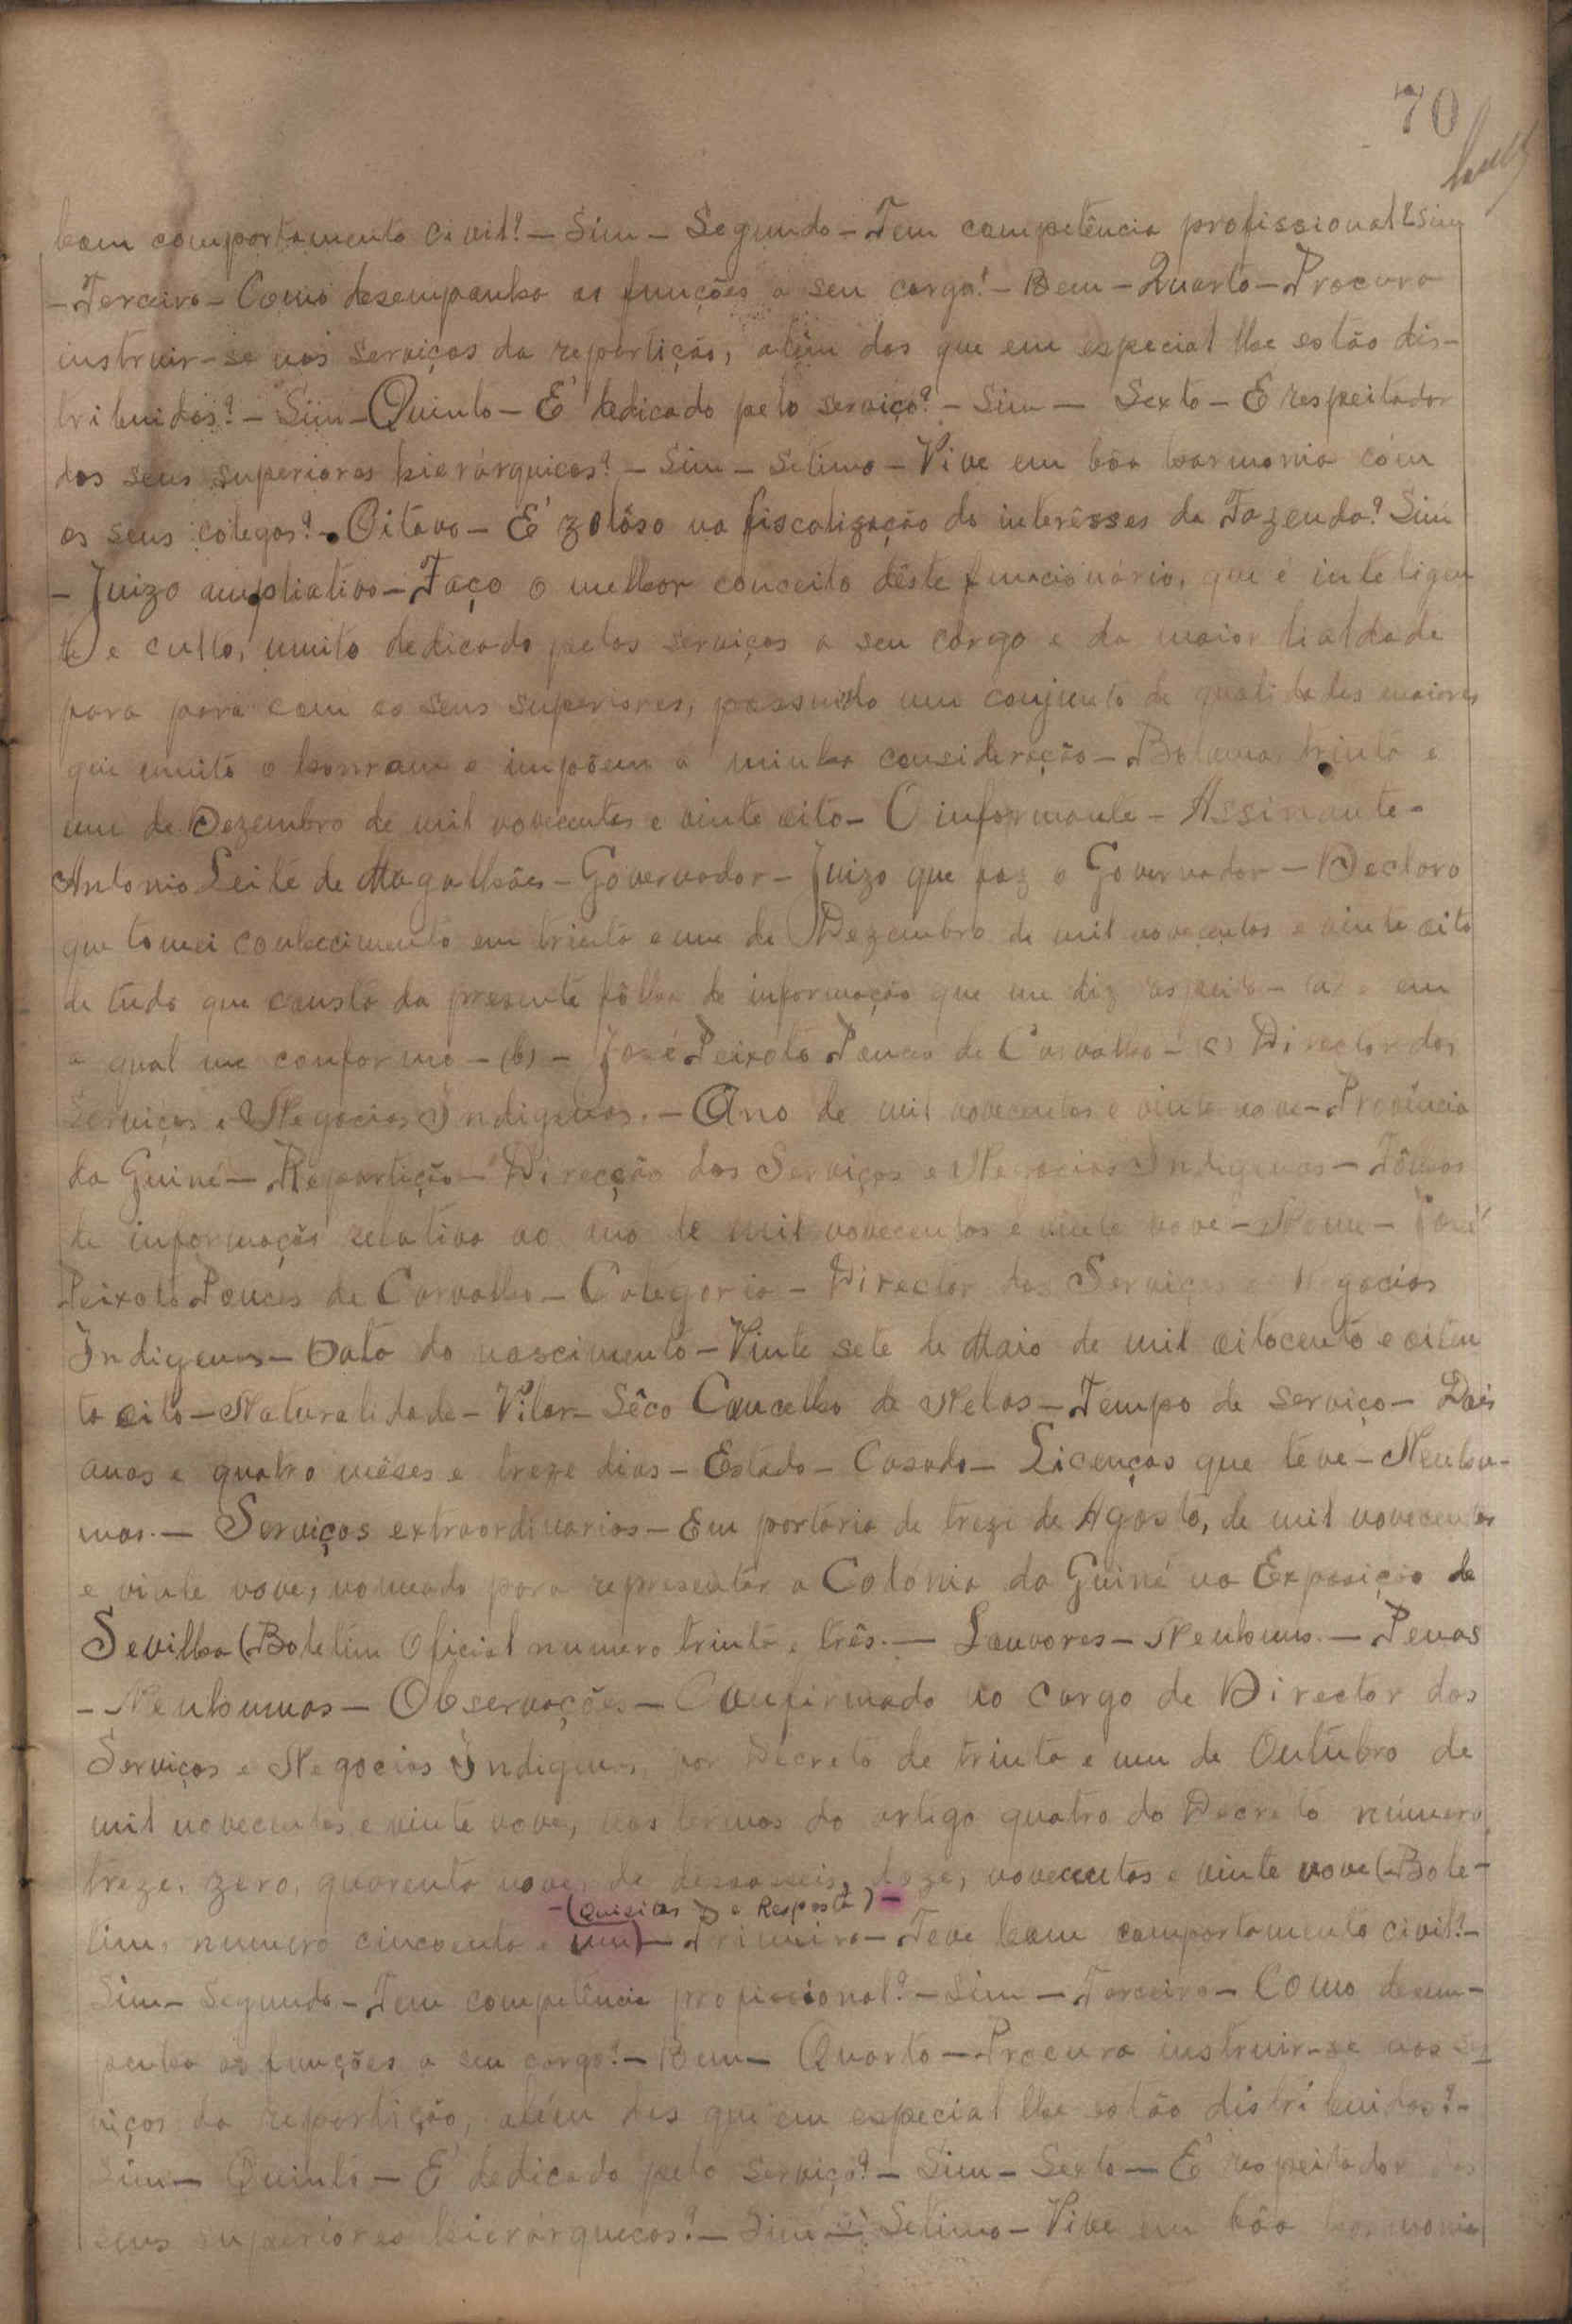 70
bom comportamento civil?— Sim — Segundo — Tem competência profissional? Sim
— Terceiro — Como desempenha as funções a seu cargo?— Bem — Quarto — Procura
instruir-se nos serviços da repartição, além dos que em especial lhe estão dis-
tribuidos?— Sim — Quinto — É dedicado pelo serviço?— Sim — Sexto — É respeitador
dos seus superiores hierárquicos?— Sim — Setimo — Vive em bôa harmonia com
os seus colegas?— Oitavo — É zelôso na fiscalização do interêsses da Fazenda? Sim
— Juizo ampliativo — Faço o melhor conceito dêste funcionário, que é inteligen
te e culto, muito dedicado pelos serviços a seu cargo e da maior lialdade
para para com os seus superiores, possuindo um conjunto de qualidades maiores
que muito o honram e impõem a minha consideração — Bolama, trinta e
um de Dezembro de mil novecentos e vinte oito — O informante — Assinante —
Antonio Leite de Magalhães — Governador — Juizo que faz o Governador — Declaro
que tomei conhecimento em trinta e um de Dezembro de mil novecentos e vinte oito
de tudo que consta da presente fôlha de informação que me diz respeito — em
a qual me conformo — (b) — José Peixoto Ponces de Carvalho — (c) Director dos
Serviços e Negocios Indigenas. — Ano de mil novecentos e vinte nove — Provincia
da Guiné — Repartição — Direcção dos Serviços e Negocios Indigenas — Fôlhas
de informação relativa ao ano de mil novecentos e vinte nove — Nome — José
Peixoto Ponces de Carvalho — Categoria — Director dos Serviços e Negocios
Indigenas — Data do nascimento — Vinte sete de Maio de mil oitocento e oiten
ta oito — Naturalidade — Vilar — Sêco Concelho de Nelas — Tempo de serviço — Dois
anos e quatro mêses e treze dias — Estado — Casado — Licenças que teve — Nenhu-
mas. — Serviços extraordinarios — Em portaria de treze de Agosto, de mil novecentos
e vinte nove, nomeado para representar a Colónia da Guiné na Exposição de
Sevilha (Boletim Oficial numero trinta e três. — Louvores — Nenhuns. — Penas
— Nenhumas — Observações — Confirmado no cargo de Director dos
Serviços e Negocios Indigenas, por Decreto de trinta e um de Outubro de
mil novecentos e vinte nove, nos termos do artigo quatro do Decreto número
treze, zero, quarenta nove, de dezasseis, doze, novecentos e vinte nove (Bole-
—(Quisitos e Resposta)—
tim, numero cincoenta e um) — Primeiro — Teve bom comportamento civil?—
Sim — Segundo — Tem competência profissional?— Sim — Terceiro — Como desem-
penha as funções a seu cargo?— Bem — Quarto — Procura instruir-se nos ser
viços da repartição, além dos que em especial lhe estão distribuidos?—
Sim — Quinto — É dedicado pelo serviço?— Sim — Sexto — É respeitador dos
seus superiores hierárquecos?— Sim — Setimo — Vive em bôa harmonia